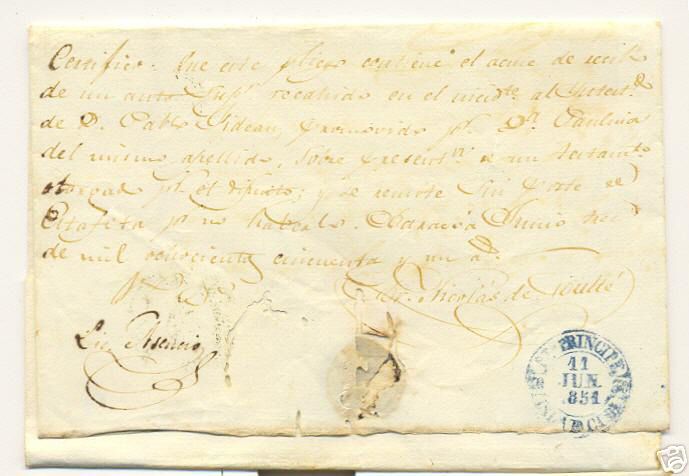 Certifico. Que este pliego contiene el acuse de recib.
de un auto Sup.r recahido en el incid.te al Intest.do
de D. Pablo Gideau, promovido p.r D.a Paulina
del mismo apellido, sobre present.n de un testam.to
otorgad p.r el difunto; y se remite sin porte de
Estafeta p.r no haberlo. Baracoa Junio tres
de mil ochocientos cincuenta y un a.s
Nicolás de
Lic. Asencio
PRINCIPE
11
JUN.
1851